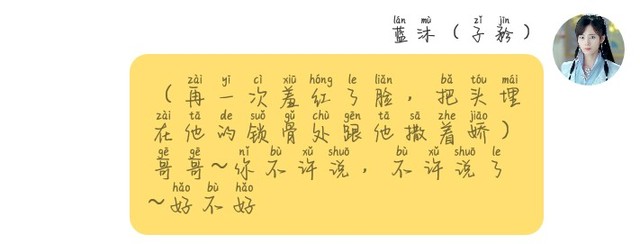 lán mù zǐ jīn
蓝沐（子矜）
zài yi cì xiū hóng le liǎn bǎ tóu mái
（再一次羞红了脸，把头埋
zài tā de suǒ gǔ chù gēn tā sā zhe jiāo
在他的锁骨处跟他撒着娇）
gē gē nǐ bù xǔ shuō bù xǔ shuō le
哥哥~你不许说，不许说了
hǎo bù hǎo
~好不好